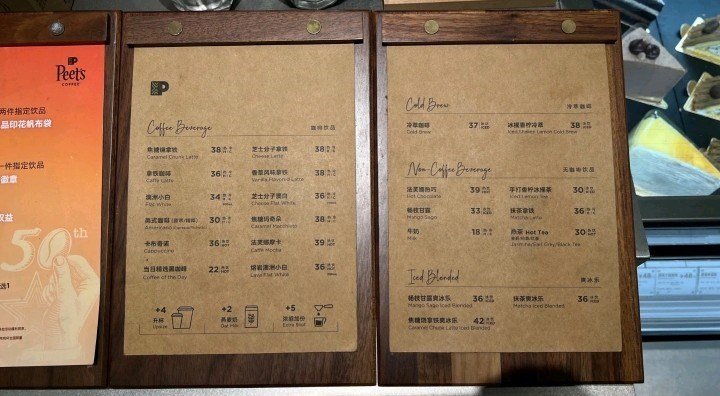 Peet's
COFFEE
两件指定饮品
品印花帆布袋
一件指定饮品
徽章
权益
50th
Coffee Beverage
咖啡饮品
焦糖燠拿铁 38
Caramel Crunch Latte
芝士分子拿铁 38
Cheese Latte
拿铁咖啡 36
Caffe Latte
香草风味拿铁 38
Vanilla Flavored Latte
澳洲小白 34
Flat White
芝士分子澳白 36
Cheese Flat White
美式咖啡 30
Americano
焦糖玛奇朵 38
Caramel Macchiato
卡布奇诺 36
Cappuccino
法芙娜摩卡 39
Caffe Mocha
当日精选黑咖啡 22
Coffee of the Day
熔岩澳洲小白 36
Lava Flat White
+4
升杯
Upsize
+2
燕麦奶
Oat Milk
+5
浓缩加份
Extra Shot
Cold Brew
冷萃咖啡
冷萃咖啡 37
Cold Brew
冰摇香柠冷萃 38
Iced Shaken Lemon Cold Brew
Non-Coffee Beverage
无咖啡饮品
法芙娜热巧 39
Hot Chocolate
手打香柠冰摇茶 30
Iced Lemon Tea
杨枝甘露 33
Mango Sago
抹茶拿铁 36
Matcha Latte
牛奶 18
Milk
热茶 Hot Tea 30
Jasmine/Earl Grey/Black Tea
Iced Blended
爽冰乐
杨枝甘露爽冰乐 36
Mango Sago Iced Blended
抹茶爽冰乐 36
Matcha Iced Blended
焦糖燠拿铁爽冰乐 42
Caramel Crunch Latte Iced Blended